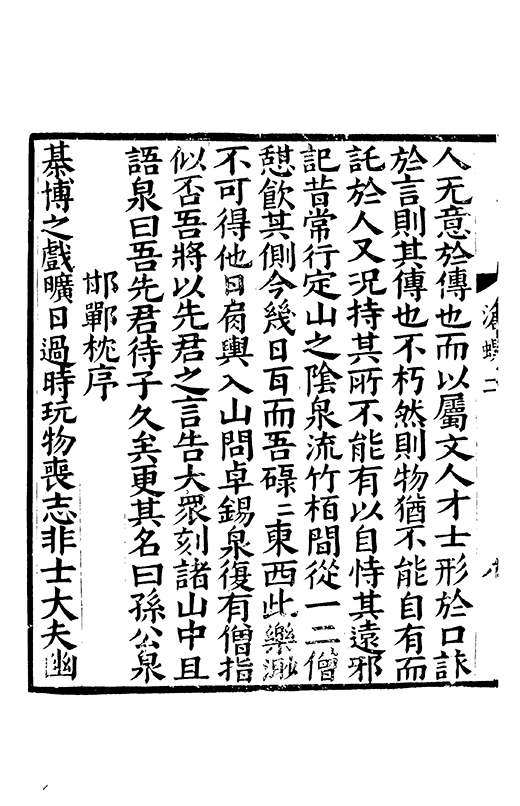 人无意於傳也而以屬文人才士形於口詠
於言則其傳也不朽然則物猶不能自有而
託於人又況持其所不能有以自恃其遠邪
記昔常行定山之陰泉流竹栢間從一二僧
憇飲其側今幾日百而吾碌二東西此樂渺
不可得他日肩輿入山問卓錫泉復有僧指
似否吾將以先君之言告大衆刻諸山中且
語泉曰吾先君待子久矣更其名曰孫公泉
邯鄲枕序
棊博之戲曠日過時玩物喪志非士大夫幽